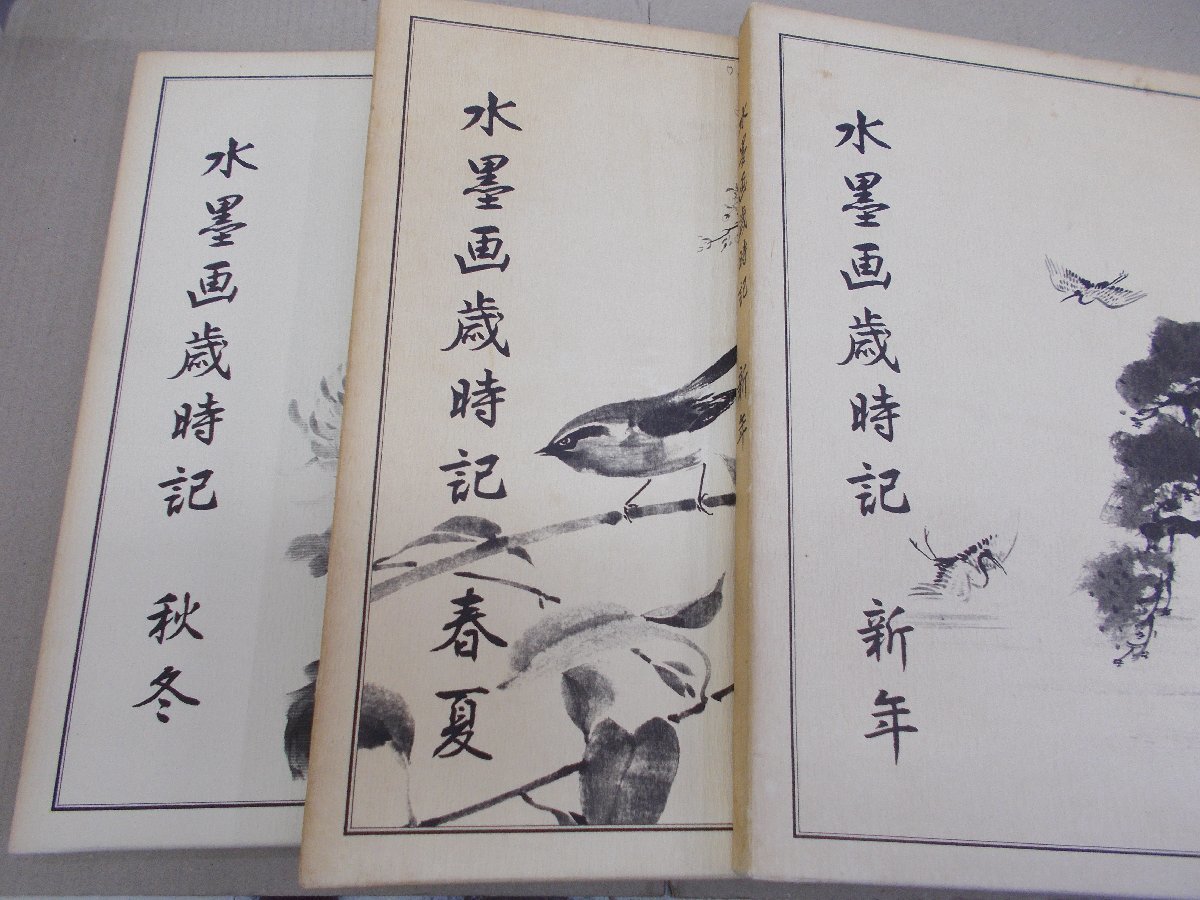 水墨画歳時記 新年
水墨画歳時記 新年
水墨画歳時記 春夏
水墨画歳時記 秋冬